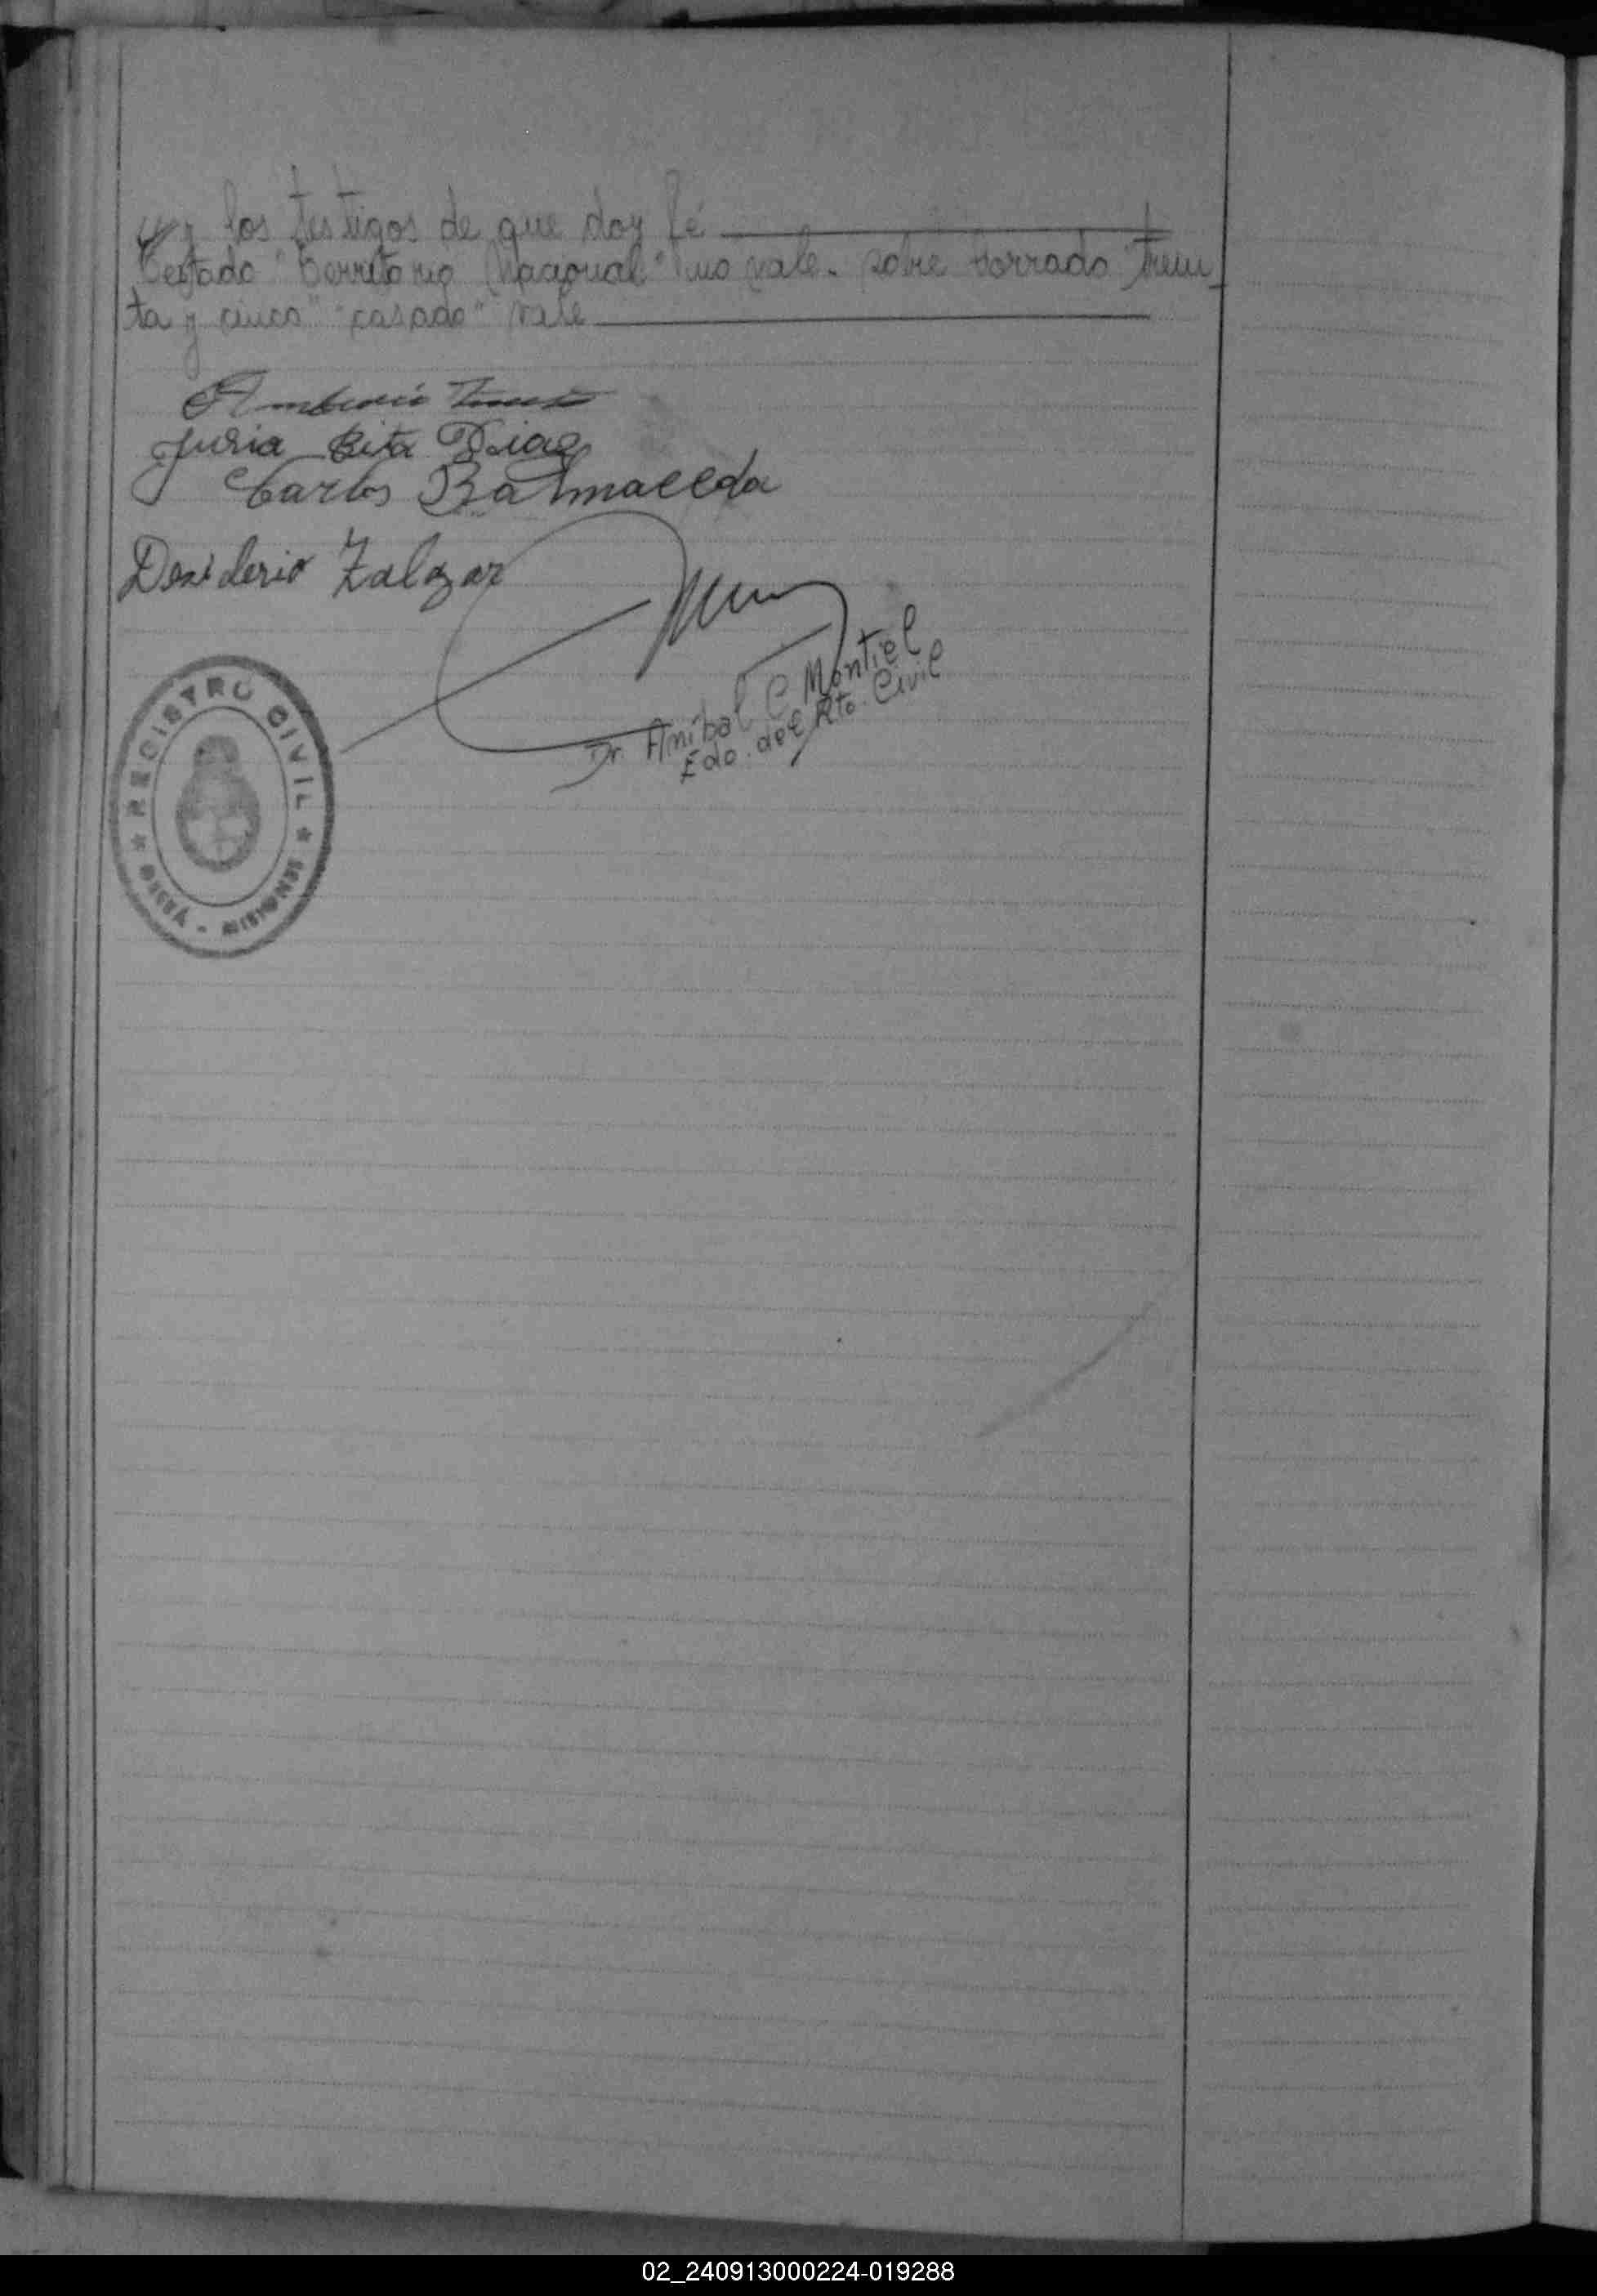 y los testigos de que doy fé
Testado "Territorio Nacional" no vale. sobre borrado "trein_
ta y cinco" "casado" vale
Juria Rita Diaz
Carlos Balmaceda
Desiderio Zalazar
Dr. Anibal C Montiel
Edo. del Rto. Civil
REGISTRO CIVIL
OBERÁ - MISIONES
02_240913000224-019288